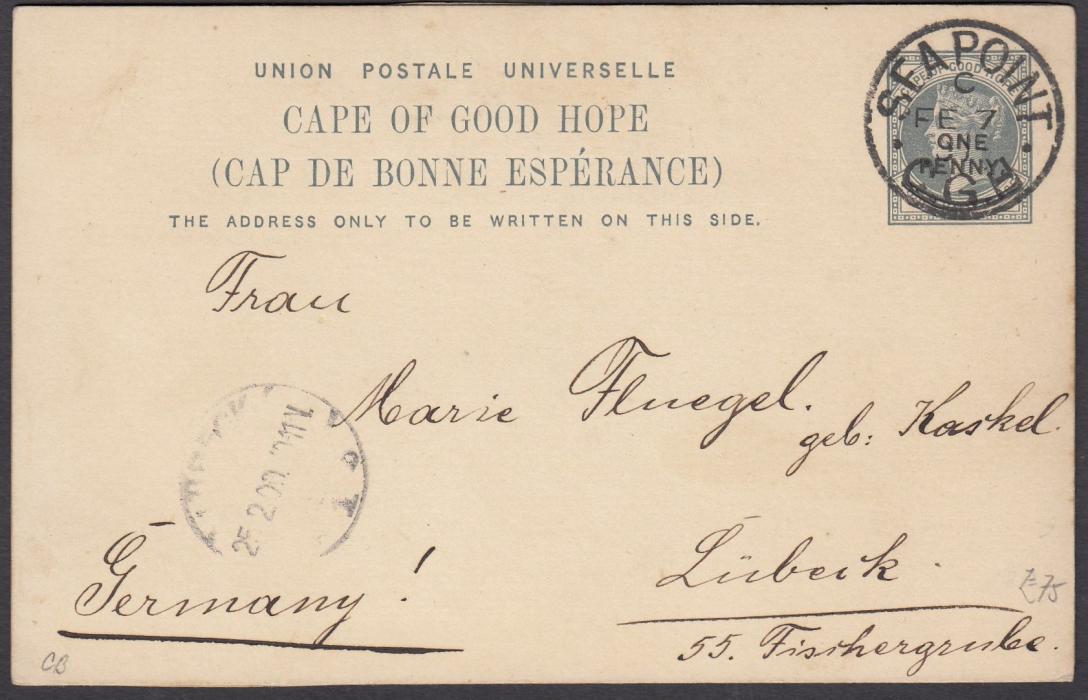 UNION POSTALE UNIVERSELLE
CAPE OF GOOD HOPE
(CAP DE BONNE ESPÉRANCE)
THE ADDRESS ONLY TO BE WRITTEN ON THIS SIDE.
SEA POINT
C
FE 7
ONE
PENNY
C.G.H
Frau
Marie Fluegel.
geb: Kaskel.
2.00.
Germany!
Lübeck.
55. Fischergrube.
£75
CB